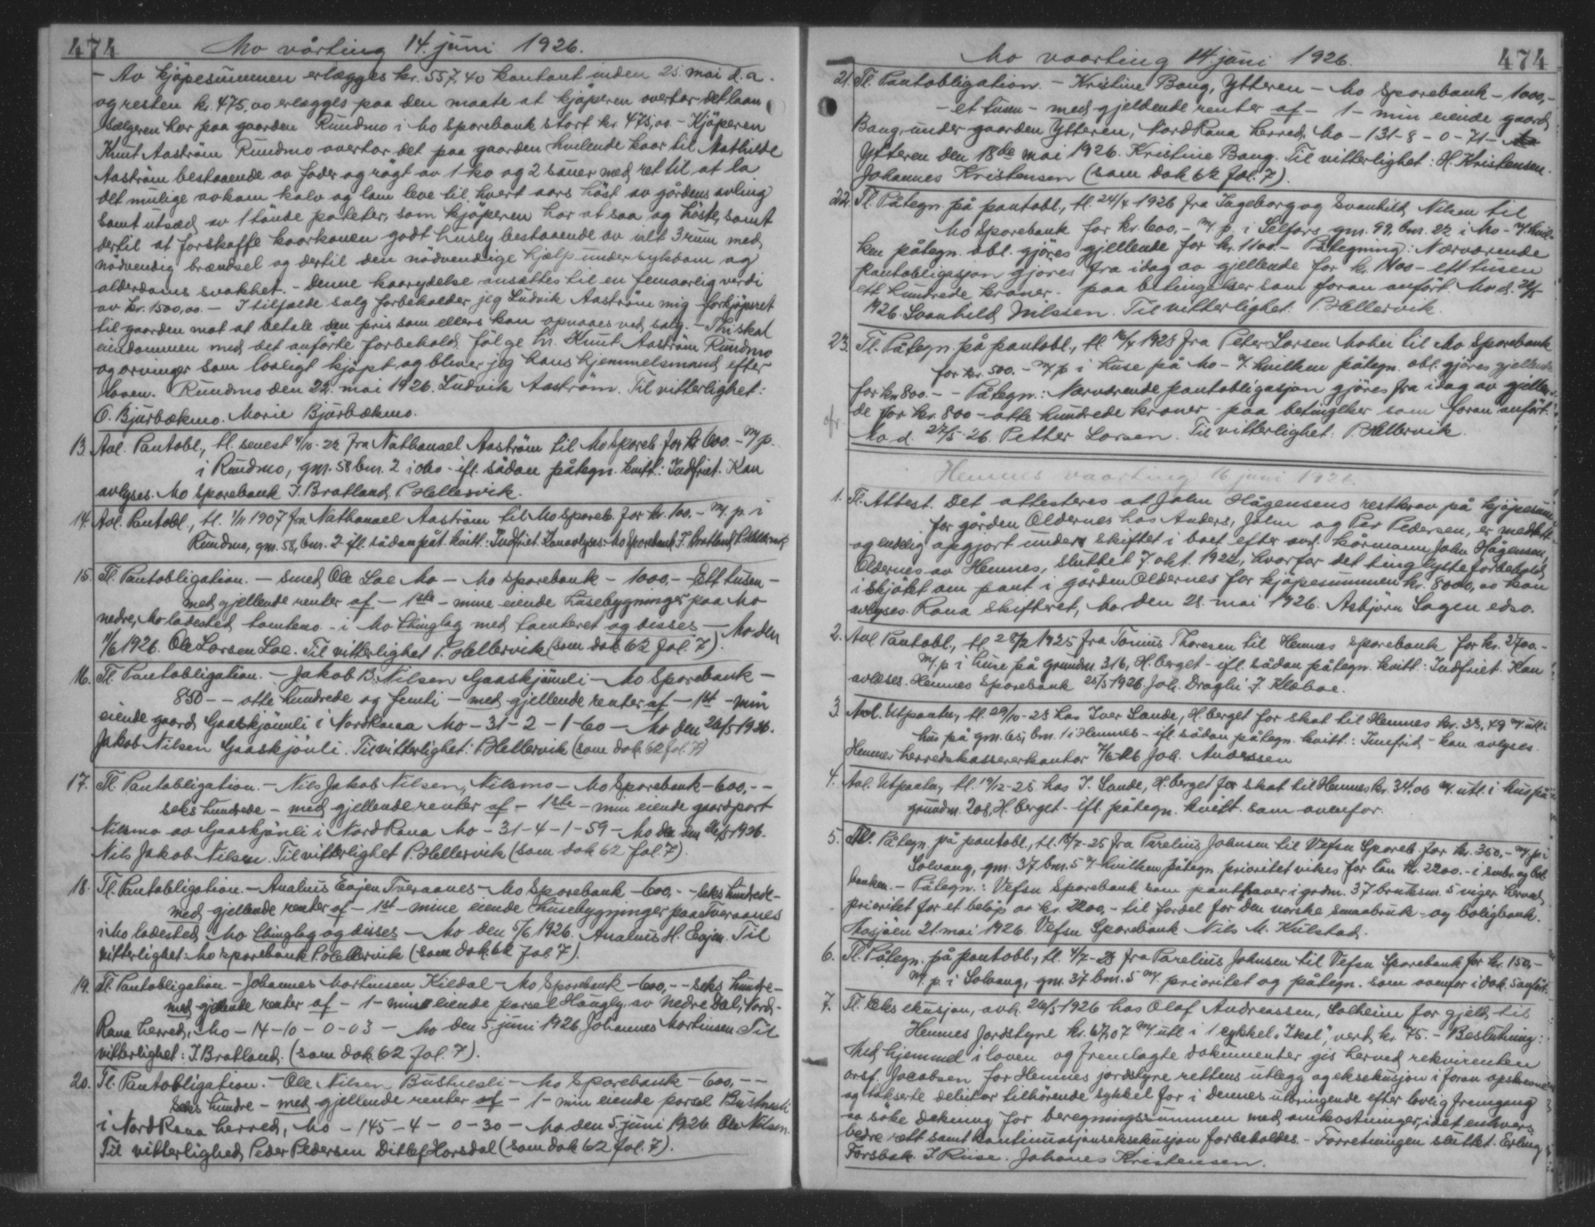 474 Mo vårting 14. juni 1926.
- Av kjøpesummen erlægges kr. 557,40 kontant inden 25. mai d.a.
og resten kr. 475,00 erlægges paa den maate at kjøperen overtar det laan
sælgeren har paa gaarden Rundmo i Mo Sparebank stort kr 475,00 - Kjøperen
Knut Aaström Rundmo overtar det paa gaarden hvilende kaar til Mathilde
Aaström bestaaende av foder og røgt av 1 ko og 2 sauer med ret til at la
det mulige avkom kalv og lam leve til hvert aars höst av gårdens avling
samt utsæd av 1 tönde poteter, som kjøperen har at saa og höste, samt
dertil at forskaffe kaarkonen godt husly bestaaende av alt 3 rum med
nödvendig brændsel og dertil den nödvendige hjælp under sykdom og
alderdoms svakhet. - Denne kaarydelse ansættes til en femaarlig verdi
av kr. 1500,00 - I tilfælde salg forbeholder jeg Ludvik Aaström mig forkjøpsret
til gaarden mot at betale den pris som ellers kan opnaaes ved salg. - Thi skal
eiendommen med det anførte forbehold følge hr. Knut Aaström Rundmo
og arvinger som lovligt kjøpt og bliver jeg hans hjemmelsmand efter
loven. Rundmo den 22. mai 1926. Ludvik Aaström. Til vitterlighet:
O. Bjurbækmo. Marie Bjurbækmo.
13. Avl. Pantobl., tl. senest 4/10-22 fra Nathanael Aaström til Mo Spareb. for kr 600. - m/ p.
i Rundmo, gnr. 58 bnr. 2 i Mo - ifl. sådan påtegn. kvitt.: Indfriet. Kan
avlyses. Mo Sparebank J. Bratland. P. Hellervik.
14. Avl. Pantobl., tl. 1/11 1907 fra Nathanael Aaström til Mo Spareb. for kr. 100. - m. p. i
Rundmo, gnr. 58, bnr. 2 ifl. sådan påt. kvitt.: Indfriet. Kan avlyses. Mo Sparebank J. Bratland P. Hellervik
15. Tl. Pantobligation. - Smed Ole Loe Mo - Mo Sparebank - 1000,- Ett tusen -
med gjellende renter af - 1ste - mine eiende husebygninger paa Mo
nedre, Mo ladested tomteno - i Mo thinglag med tomteret og disses - Mo den
1/6 1926. Ole Larsen Loe. Til vitterlighet P. Hellervik (som dok 62 fol. 7).
16. Tl. Pantobligation. - Jakob B. Nilsen Gaaskjønli - Mo Sparebank -
850 - - otte hundrede og femti - med gjellende renter af - 1st - min
eiende gaard Gaaskjønli i Nord Rana Mo - 31 - 2 - 1 - 60 - Mo den 26/5 1926.
Jakob Nilsen Gaaskjönli. Til vitterlighet: P. Hellervik (som dok 62 fol. 7)
17. Tl. Pantobligation. - Nils Jakob Nilsen, Nilsmo - Mo Sparebank - 600,- -
seks hundrede - med gjellende renter af - 1ste - min eiende gaardpart
Nilsmo av Gaaskjönli i Nord Rana Mo - 31 - 4 - 1 - 59 - Mo den 26/5 1926.
Nils Jakob Nilsen. Til vitterlighet P. Hellervik (som dok 62 fol. 7).
18. Tl. Pantobligation. - Analius Eajen Tveraanes - Mo Sparebank - 600,- - seks hundrede -
med gjellende renter af - 1st - mine eiende husebygninger paa Tveraanes
i Mo ladested Mo thinglag og disses - Mo den 5/6 1926. Analius H. Eajen. Til
vitterlighet: Mo Sparebank P. Hellervik (som dok 62 fol 7).
19. Tl. Pantobligation - Johannes Martinsen Kildal - Mo Sparebank - 600,- - seks hundre -
med gjellende renter af - 1 - min eiende parsel Haugly av nedre Dal, Nord-
Rana herred, Mo - 14 - 10 - 0 - 03 - Mo den 5. juni 1926. Johannes Martinsen Til
vitterlighet: J. Bratland. (som dok. 62 fol. 7).
20. Tl. Pantobligation. - Ole Nilsen Bustnesli - Mo Sparebank - 600,- -
seks hundre - med gjellende renter af - 1 - min eiende parsel Bustnesli
i Nord Rana herred, Mo - 145 - 4 - 0 - 30 - Mo den 5. juni 1926. Ole Nilsen.
Til vitterlighed Peder Pedersen Ditlef Horsdal (som dok 62 fol. 7).
Mo vaarting 14 juni 1926. 474
21. Tl. Pantobligation - Kristine Bang, Ytteren - Mo Sparebank - 1000,-
- et tusen - med gjeldende renter af - 1 - min eiende gaard
Bang under gaarden Ytteren, Nord Rana herred, Mo - 131 - 8 - 0 - 71 -
Ytteren den 18de mai 1926. Kristine Bang. Til vitterlighet: H. Kristensen.
Johannes Kristensen (som dok 62 fol. 7).
22. Tl. Påtegn. på pantobl., tl. 24/4 1926 fra Ingeborg og Svanhild Nilsen til
Mo Sparebank for kr. 600,- m/ p. i Selfors gnr. 99, bnr. 22 i Mo - m/ hvil-
ken påtegn. obl. gjøres gjellende for kr. 1100 - Påtegning: Nærværende
pantobligasjon gjøres fra idag av gjellende for kr. 1100 - ett tusen
ett hundrede kroner. paa betingelser som foran anfört. Mo d. 26/5
1926. Svanhild Nilssen. Til vitterlighet P. Hellervik.
23. Tl. Påtegn. på pantobl., tl. 1925 fra Peter Larsen Mohei til Mo Sparebank
for kr. 500. - m/ p i huse på Mo - m/ hvilken påtegn. obl. gjøres gjellende
for kr 800. - - Påtegn.: Nærværende pantobligasjon gjøres fra idag av gjellen-
de for kr. 800 - otte hundrede kroner - paa betingelser som foran anført.
Mo d. 27/5-26. Petter Larsen. Til vitterlighet: P. Hellervik.
Hemnes vaarting 16 juni 1926.
1. Tl. Attest. Det attesteres at John Hågensens restkrav på kjøpesum
for gården Oldernes hos Anders, John og Per Pedersen, er medtatt
og endelig opgjort under skiftet i boet efter avd. kårmann John Hågensen,
Oldernes av Hemnes, sluttet 7. okt. 1922, hvorfor det tinglyste forbehold
i skjöte om pant i gården Oldernes for kjøpesummen kr. 8000,00 kan
avlyses. Rana skifteret, Mo den 28. mai 1926. Asbjörn Lagen edro.
2. Avl Pantobl., tl. 28/2 1925 fra Tonius Thoresen til Hemnes Sparebank for kr. 2700. -
m/ p. i huse på grundnr 316, H.berget - ifl. sådan påtegn. kvitt.: Indfriet. Kan
avleses. Hemnes Sparebank 25/5 1926 Joh. Draglü. J. Klæboe.
3. Avl. Utpantn., tl. 29/10-25 hos Iver Lande, H.berget for skat til Hemnes kr. 33,49 m. utl. i
hus på gnr. 65, bnr. 1 i Hemnes - ifl. sådan påtegn. kvitt.: Innfrid - kan avlyses.
Hemnes herredskassererkontor 7/6-26 Joh. Andersen
4. Avl. Utpantn., tl. 19/12-25 hos I. Lande, H.berget for skat til Hemnes kr. 34.06 m. utl. i hus på
grundnr. 208, H.berget - ifl. påtegn. kvitt. som ovenfor.
5. Tl. Påtegn. på pantobl., tl. 7-25 fra Parelius Johnsen til Vefsn Spareb. for kr. 350,- m/ p. i
Solvang, gnr. 37 bnr. 5 m/ hvilken påtegn. prioritet vikes for lån kr. 2200. - i smbr og bol.
banken. - Påtegn.: Vefsn Sparebank som panthaver i grdnr. 37 bruksnr. 5 viger herved
prioritet for et beløp av kr. 2200,- til fordel for den norske smaabruk- og boligbank.
Mosjøen 21. mai 1926. Vefsn Sparebank Nils M. Kulstad.
6. Tl. Påtegn. på pantobl., tl. 4/7-23 fra Parelius Johnsen til Vefsn Sparebank for kr. 150,-
m/ p. i Solvang, gnr. 37 bnr. 5 m/ prioritet og påtegn. som ovenfor i dok. 5 anført.
7. Tl. Eksekusjon, avh. 26/5 1926 hos Olaf Andreassen, Solheim for gjeld til
Hemnes Jordstyre kr. 67,07 m/ utl i 1 sykkel "Ideal", verd. kr. 75. - Beslutning:
Med hjemmel i loven og fremlagte dokumenter gis herved rekvirenten
orsf. Jacobsen for Hemnes jordstyre rettens utlegg og eksekusjon i foran opskrevne
og takserte debitor tilhörende sykkel for i dennes utbringende efter lovlig fremgang
aa söke dekning for beregningssummen med omkostninger, idet enhvers
bedre rett samt kontinuasjonseksekusjon forbeholdes. - Forretningen sluttet. Erling
Forsbak. J. Riise. Johanes Kristensen.